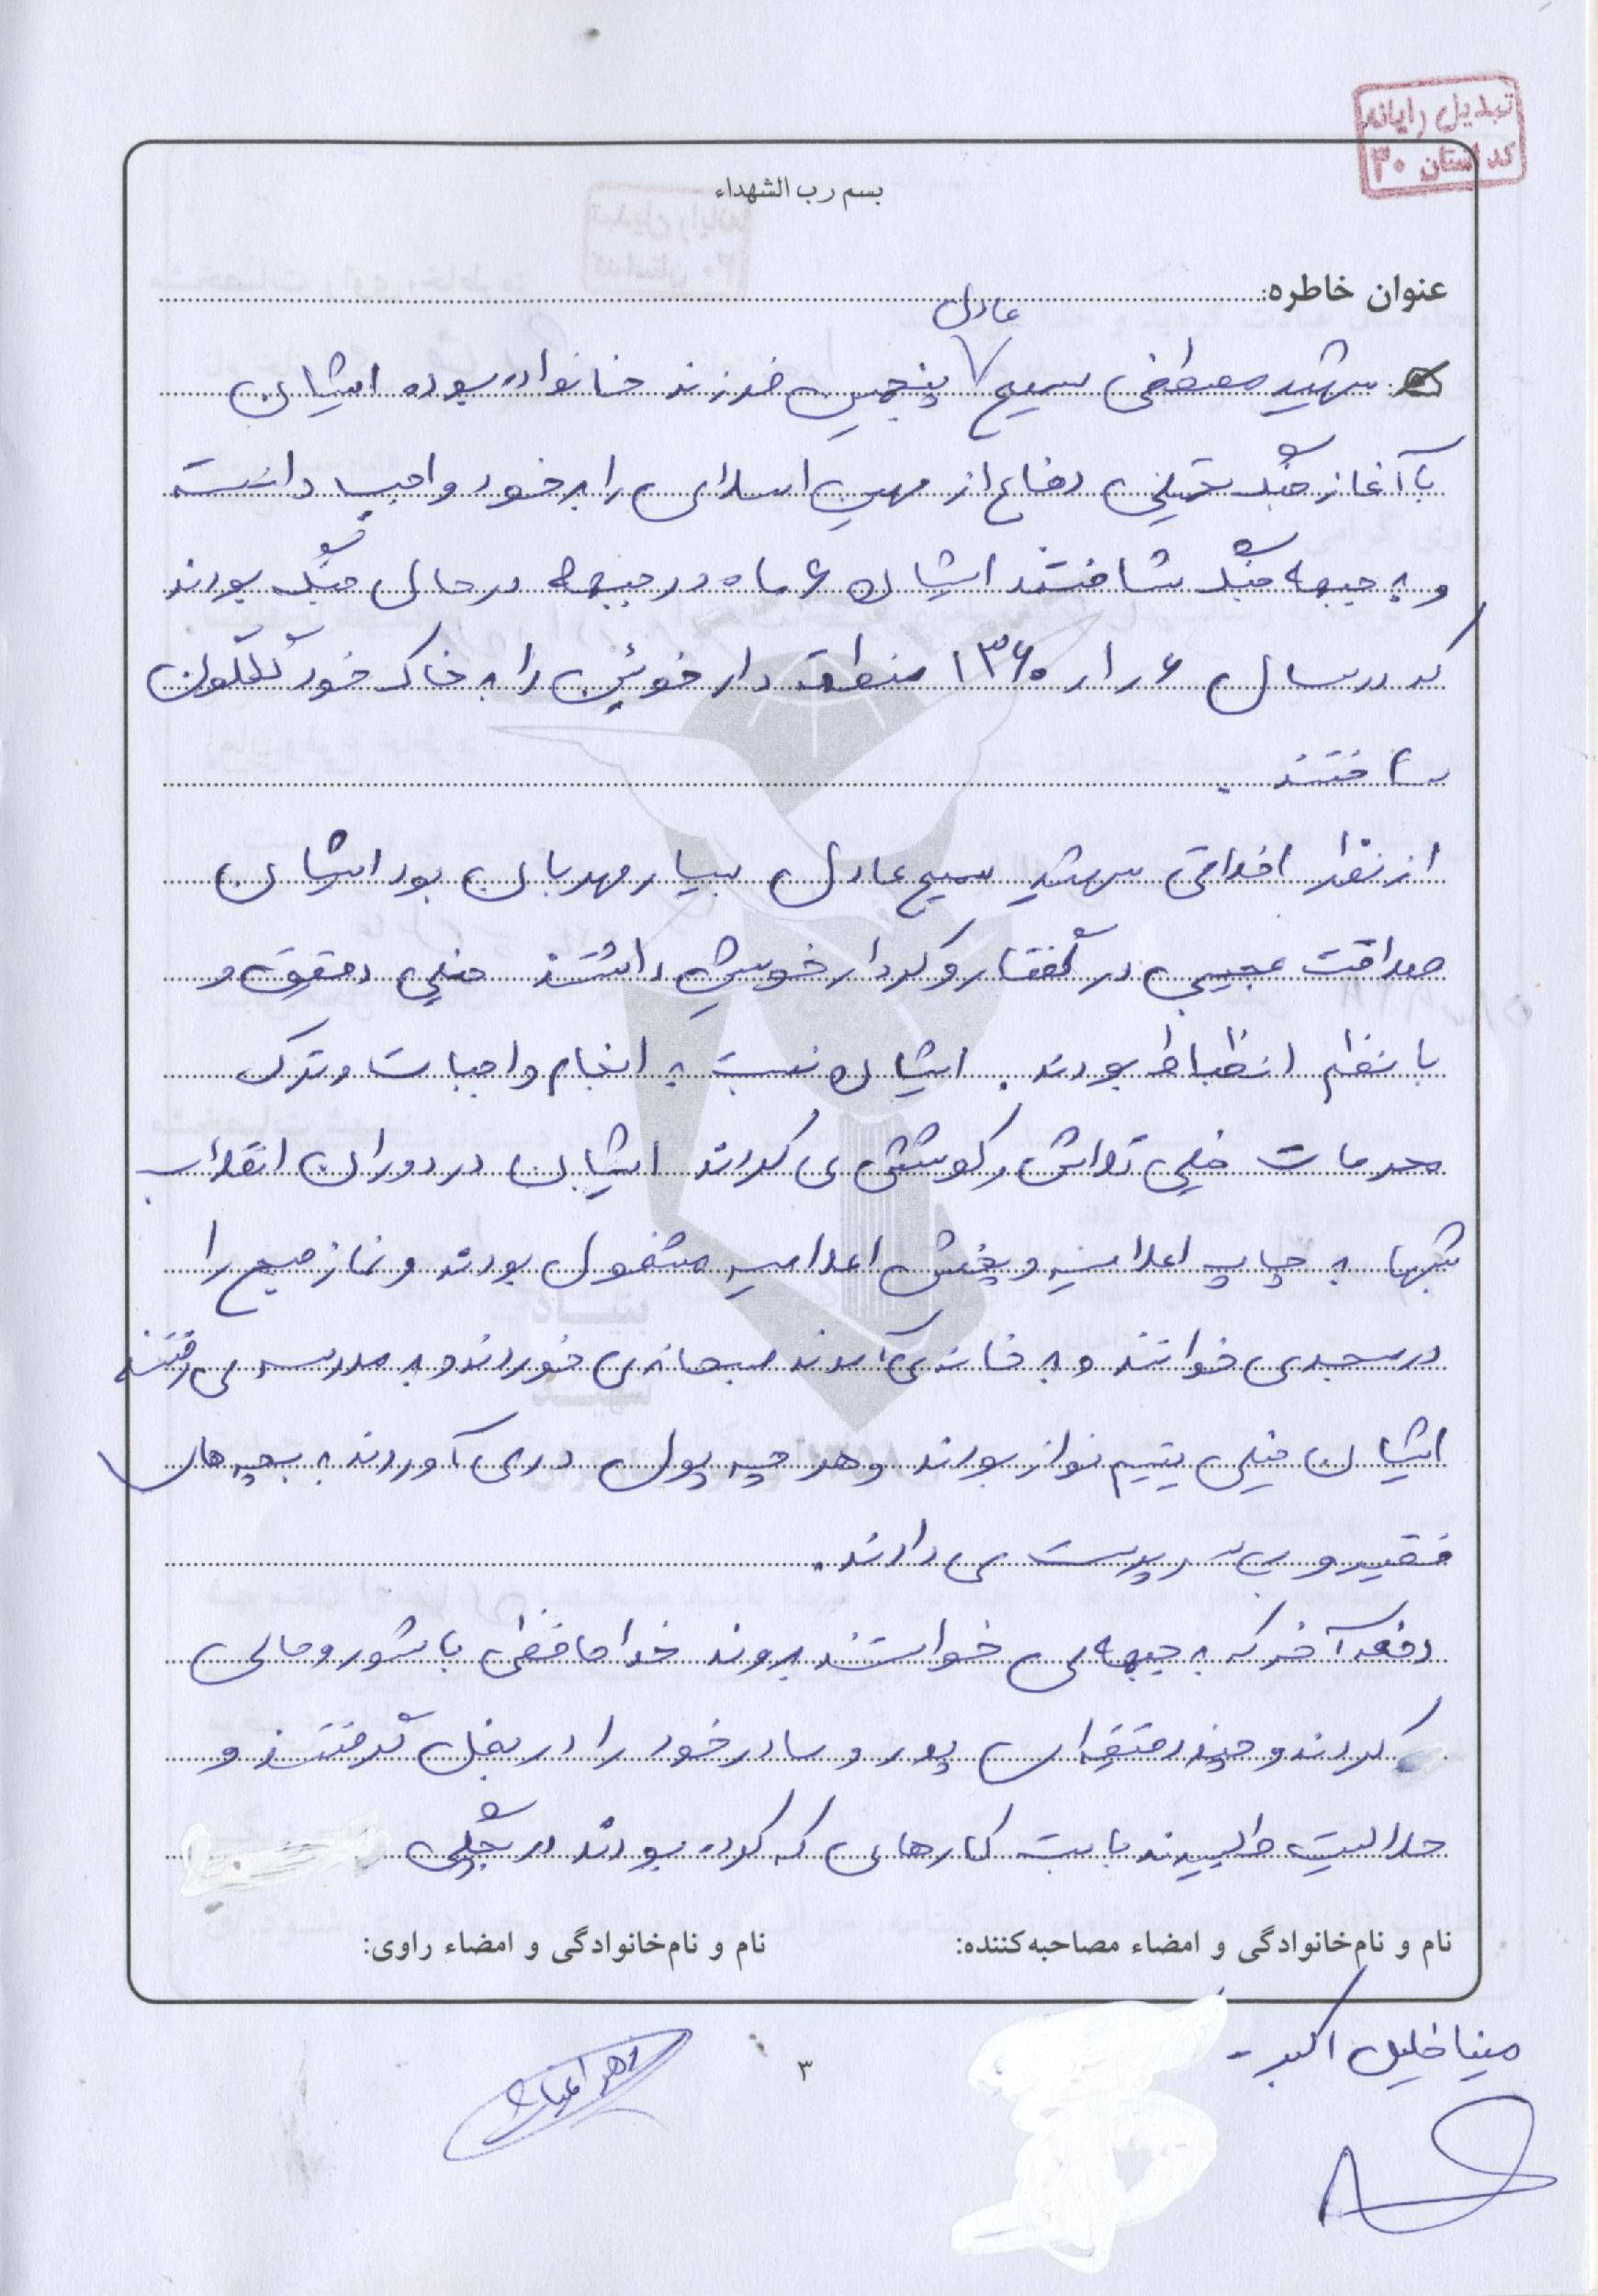 تبدیل رایانه
کد استان ۳۰
بسم رب الشهداء
عنوان خاطره:
عادل
شهید مصطفی سمیع پنجمین فرزند خانواده بوده ایشان
با آغاز جنگ تحمیلی دفاع از میهن اسلامی را بر خود واجب دانسته
و به جبهه جنگ شتافتند ایشان ۶ ماه در جبهه در حال جنگ بودند
که در سال ۱۳۶۰ منطقه دارخوئین را به خاک خود گلگون
ساختند .
از نظر اخلاقی شهید سمیع عادل بسیار مهربان بود ایشان
صداقت عجیبی در گفتار و کردار خویش داشتند خیلی دقیق و
با نظم انظباط بودند . ایشان نسبت به انجام واجبات و ترک
محرمات خیلی تلاش و کوشش می کردند ایشان در دوران انقلاب
شبها به چاپ اعلامیه و پخش اعلامیه مشغول بودند و نماز صبح را
در مسجد می خواندند و به خانه می آمدند صبحانه می خوردند و به مدرسه می رفتند
ایشان خیلی یتیم نواز بودند و هر چه پول در می آوردند به بچه های
فقیر و بی سرپرست می دادند .
دفعه آخر که به جبهه می خواستند بروند خداحافظی با شور و حالی
کردند و چند دقیقه ای پدر و مادر خود را در بغل گرفتند و
حلالیت طلبیدند بابت کارهای که کرده بودند در بچگی
نام و نام‌خانوادگی و امضاء مصاحبه‌کننده:
نام و نام‌خانوادگی و امضاء راوی:
مینا خلیل اکبر -
۳